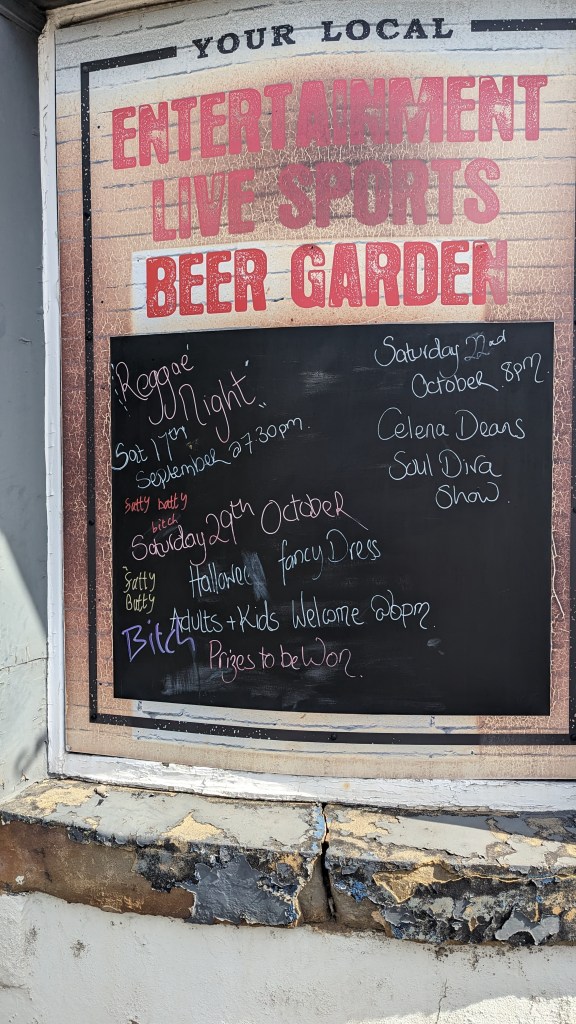 YOUR LOCAL
ENTERTAINMENT
LIVE SPORTS
BEER GARDEN
"Reggae
Night"
Sat 17th
September @7.30pm.
Satty batty
bitch
Saturday 29th October
Hallowee fancy Dress
Satty
Batty
Bitch
Adults + Kids Welcome @6pm.
Prizes to be Won.
Saturday 22nd
October 8pm.
Celena Deans
Soul Diva
Show.